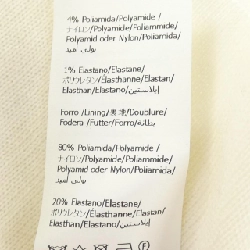 4% Poliamida/Polyamide/
ナイロン/Polyamide/Poliammide/
Polyamid oder Nylon/Poliamida/
بولي اميد
1% Elastano/Elastane/
ポリウレタン/Elasthanne/Elastan/
Elasthan/Elastano/إيلاستين
Forro/Lining/裏地/Doublure/
Fodera/Futter/Forro/بطانة
80% Poliamida/Polyamide/
ナイロン/Polyamide/Poliammide/
Polyamid oder Nylon/Poliamida/
بولي اميد
20% Elastano/Elastane/
ポリウレタン/Elasthanne/Elastan/
Elasthan/Elastano/إيلاستين